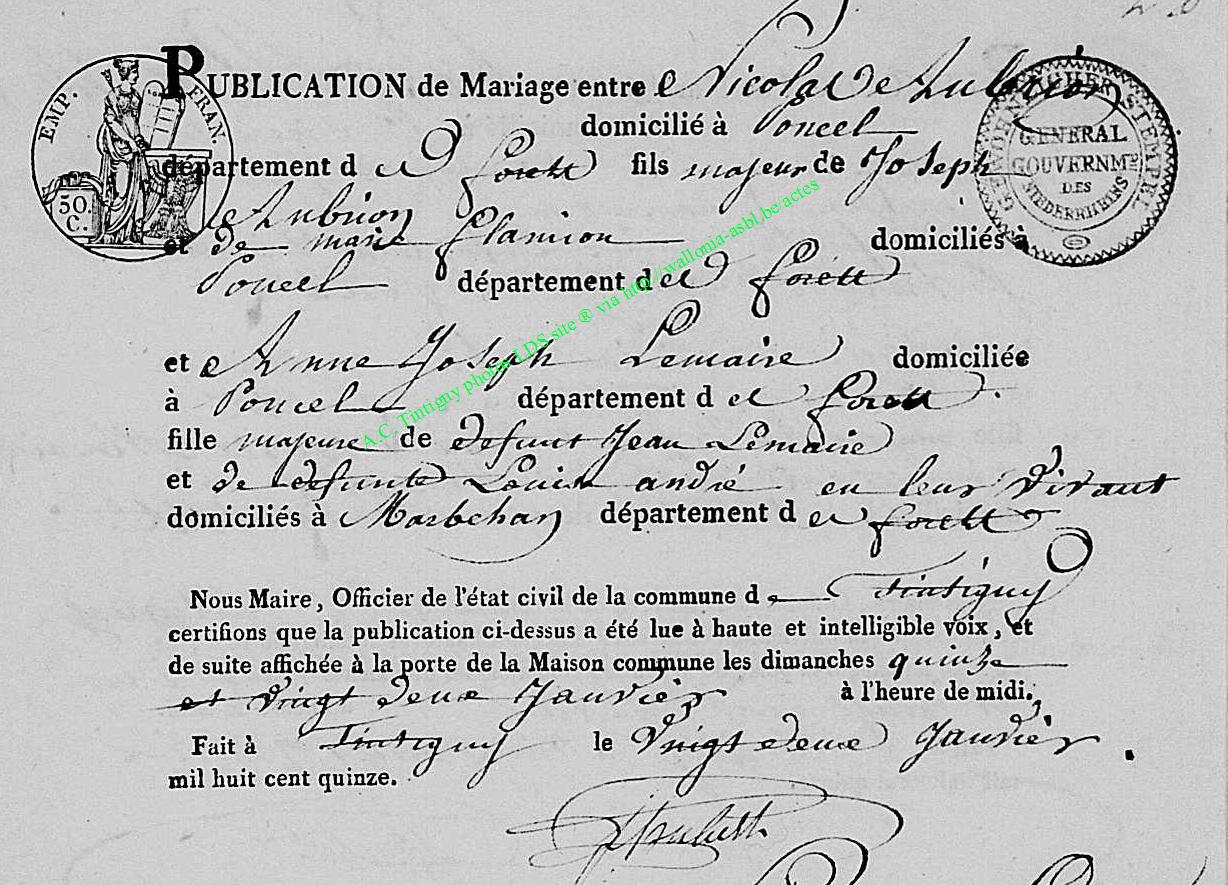 EMP. FRAN.
50. C.
GEWOHNLICHER STEMPEL
GENERAL
GOUVERNMTS
DES
NIEDERRHEINS
PUBLICATION de Mariage entre Nicolas Aubrion
domicilié à Poncel
département des forêts fils majeur de Joseph
Aubrion
et de marie flamion domiciliés à
Poncel département des forêts
et Anne Joseph Lemaire domiciliée
à Poncel département des forêts.
fille majeure de defunt Jean Lemaire
et de defunte Louise andré en leur vivant
domiciliés à Marbehan département des forêts
Nous Maire, Officier de l'état civil de la commune de Tintigny
certifions que la publication ci-dessus a été lue à haute et intelligible voix, et
de suite affichée à la porte de la Maison commune les dimanches quinze
et vingt deux Janvier à l'heure de midi.
Fait à Tintigny le vingt deux Janvier.
mil huit cent quinze.
A.C. Tintigny photos LDS site ® via http://wallonia-asbl.be/actes